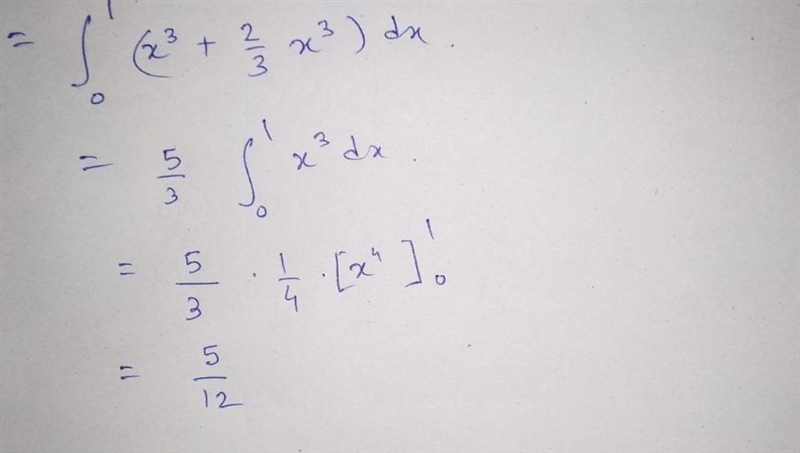 = ∫₀¹ (x³ + 2/3 x³) dx.
= 5/3 ∫₀¹ x³ dx.
= 5/3 · 1/4 · [x⁴]₀¹
= 5/12